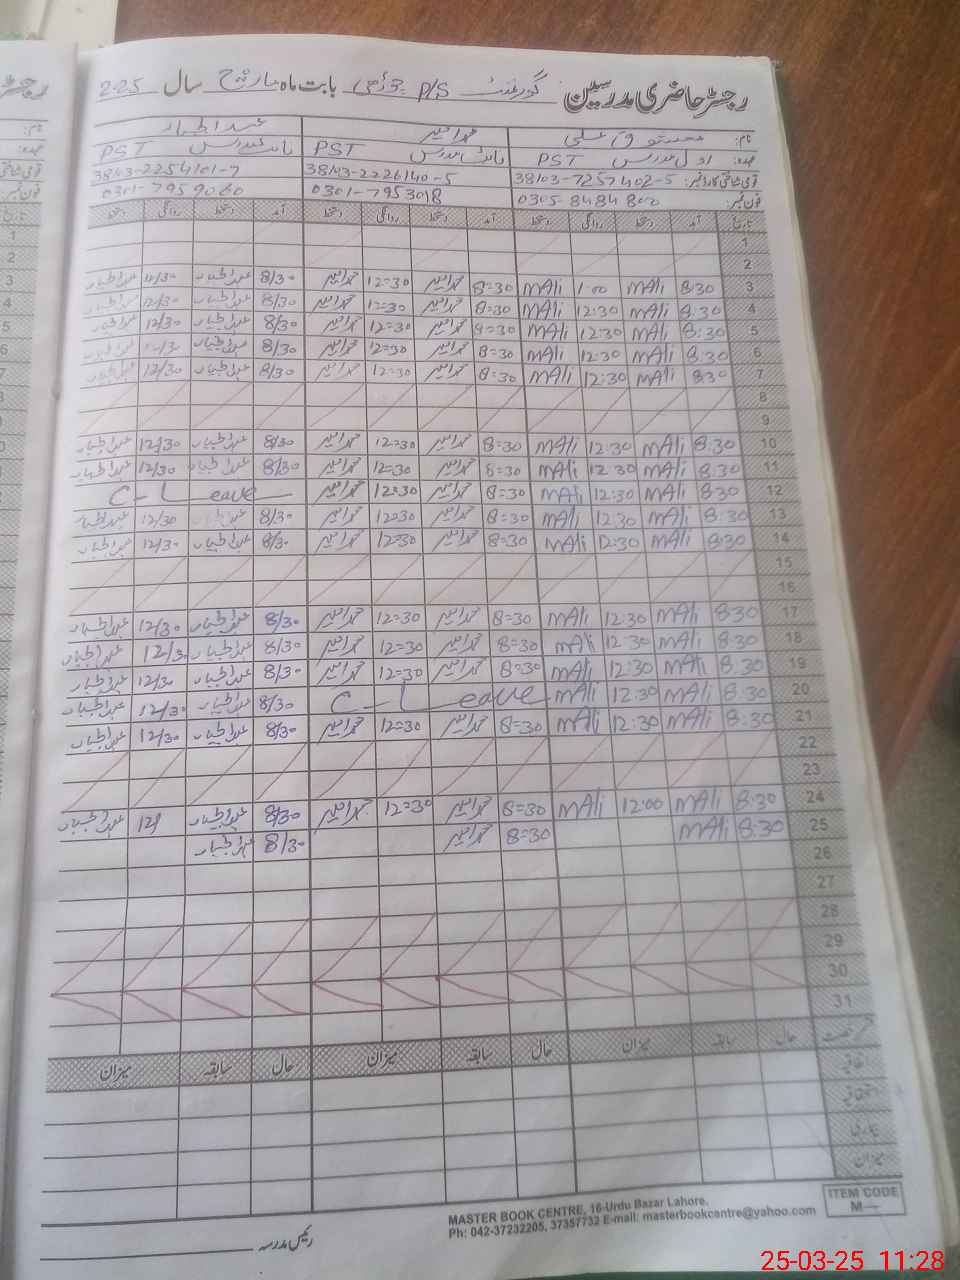 رجسٹر حاضری مدرسین گورنمنٹ P/S بابت ماہ مارچ سال 2025
نام: علی محمد امیر عبدالجبار
عہدہ: اول مدرس PST نائب مدرس PST نائب مدرس PST
قومی شناختی کارڈ نمبر: 38103-7257402-5 38103-2226140-5 38103-2254101-7
فون نمبر: 0305 8484800 0301-7953018 0301-7959060
تاریخ آمد دستخط روانگی دستخط آمد دستخط روانگی دستخط آمد دستخط روانگی دستخط
1
2
3 8:30 mAli 1:00 mAli 8=30 محمد امیر 12=30 محمد امیر 8/30 عبدالجبار 12/30 عبدالجبار
4 8:30 mAli 12:30 mAli 8=30 محمد امیر 12=30 محمد امیر 8/30 عبدالجبار 12/30 عبدالجبار
5 8:30 mAli 12:30 mAli 8=30 محمد امیر 12=30 محمد امیر 8/30 عبدالجبار 12/30 عبدالجبار
6 8:30 mAli 12:30 mAli 8=30 محمد امیر 12=30 محمد امیر 8/30 عبدالجبار 12/30 عبدالجبار
7 8:30 mAli 12:30 mAli 8=30 محمد امیر 12=30 محمد امیر 8/30 عبدالجبار 12/30 عبدالجبار
8
9
10 8:30 mAli 12:30 mAli 8=30 محمد امیر 12=30 محمد امیر 8/30 عبدالجبار 12/30 عبدالجبار
11 8:30 mAli 12:30 mAli 8=30 محمد امیر 12=30 محمد امیر 8/30 عبدالجبار 12/30 عبدالجبار
12 8:30 mAli 12:30 mAli 8=30 محمد امیر 12=30 محمد امیر C-Leave
13 8:30 mAli 12:30 mAli 8=30 محمد امیر 12=30 محمد امیر 8/30 عبدالجبار 12/30 عبدالجبار
14 8:30 mAli 12:30 mAli 8=30 محمد امیر 12=30 محمد امیر 8/30 عبدالجبار 12/30 عبدالجبار
15
16
17 8:30 mAli 12:30 mAli 8=30 محمد امیر 12=30 محمد امیر 8/30 عبدالجبار 12/30 عبدالجبار
18 8:30 mAli 12:30 mAli 8=30 محمد امیر 12=30 محمد امیر 8/30 عبدالجبار 12/30 عبدالجبار
19 8:30 mAli 12:30 mAli 8=30 محمد امیر 12=30 محمد امیر 8/30 عبدالجبار 12/30 عبدالجبار
20 8:30 mAli 12:30 mAli C-Leave 8/30 عبدالجبار 12/30 عبدالجبار
21 8:30 mAli 12:30 mAli 8=30 محمد امیر 12=30 محمد امیر 8/30 عبدالجبار 12/30 عبدالجبار
22
23
24 8:30 mAli 12:00 mAli 8=30 محمد امیر 12=30 محمد امیر 8/30 عبدالجبار عبدالجبار
25 8:30 mAli 8=30 محمد امیر 8/30 عبدالجبار
26
27
28
29
30
31
رخصت حال سابقہ میزان حال سابقہ میزان حال سابقہ میزان
اتفاقیہ
استحقاقیہ
بیماری
میزان
رئیس مدرسہ
MASTER BOOK CENTRE, 16-Urdu Bazar Lahore.
Ph: 042-37232205, 37357732 E-mail: masterbookcentre@yahoo.com
ITEM CODE
M—
25-03-25 11:28